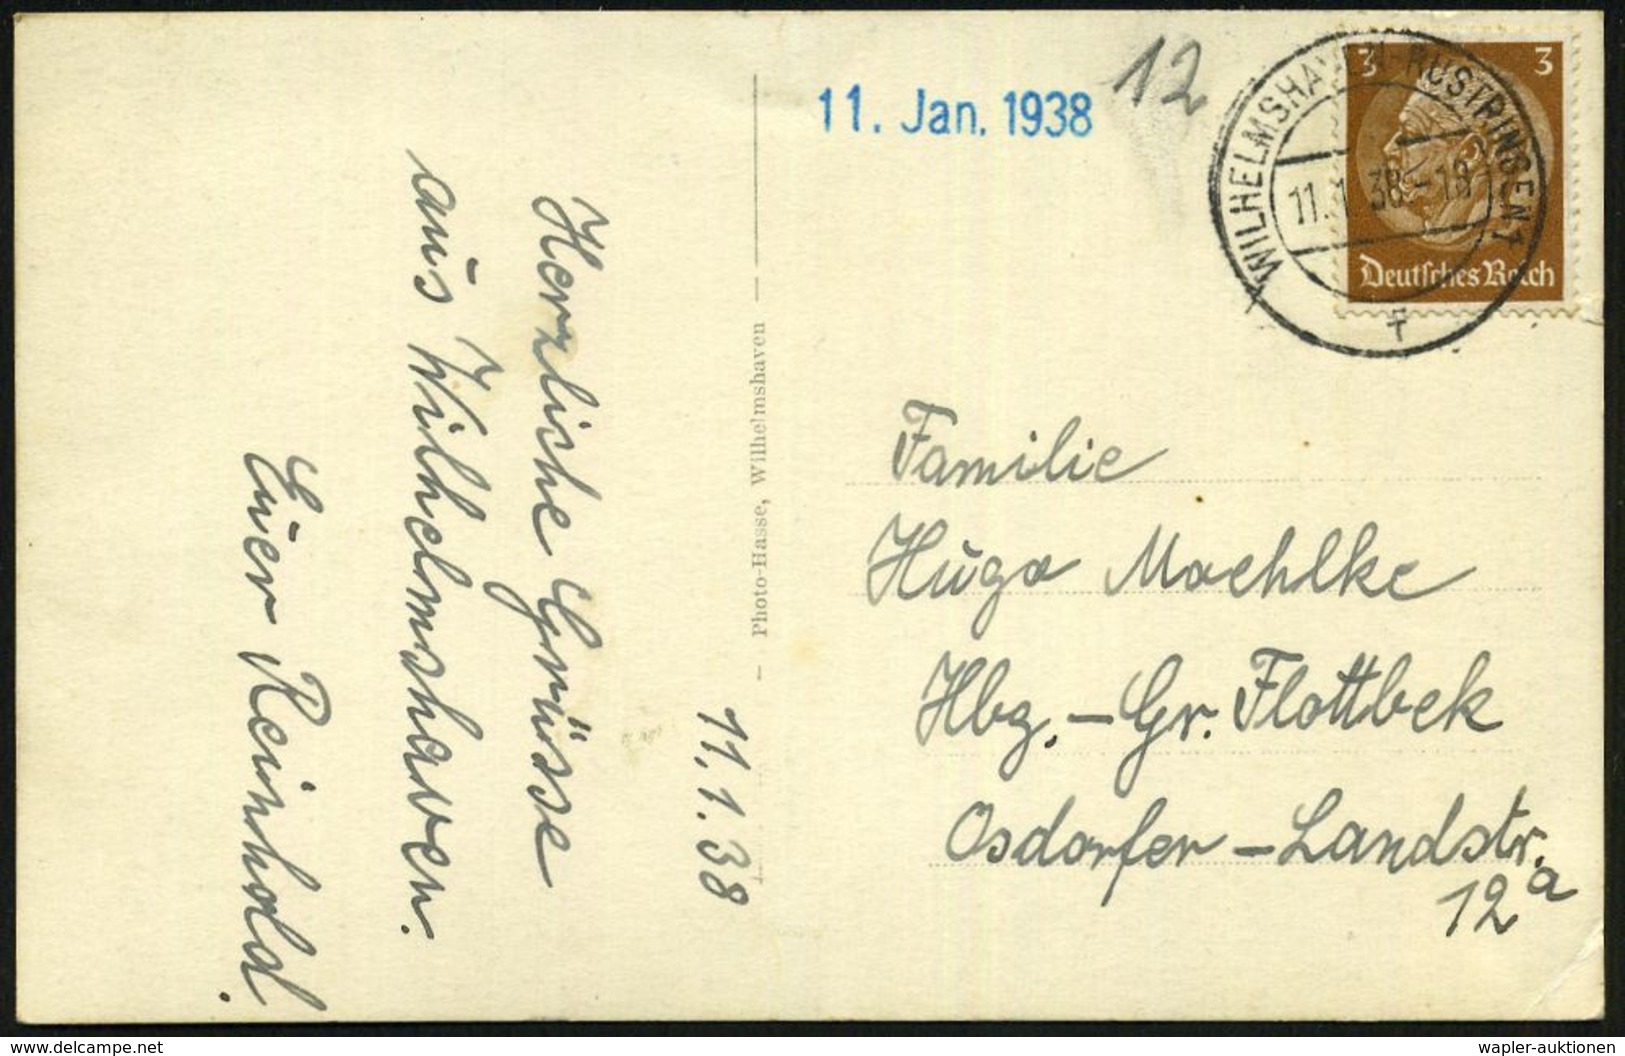 11.1.38
Herzliche Grüsse
aus Wilhelmshaven.
Euer Reinhold.
— Photo-Hasse, Wilhelmshaven —
11. Jan. 1938
12
WILHELMSHAVEN-RÜSTRINGEN 1
11.1.38.-18
f
3 3
Deutsches Reich
Familie
Hugo Moehlke
Hbg.-Gr. Flottbek
Osdorfer-Landstr.
12a
http://www.delcampe.net
wapler-auktionen